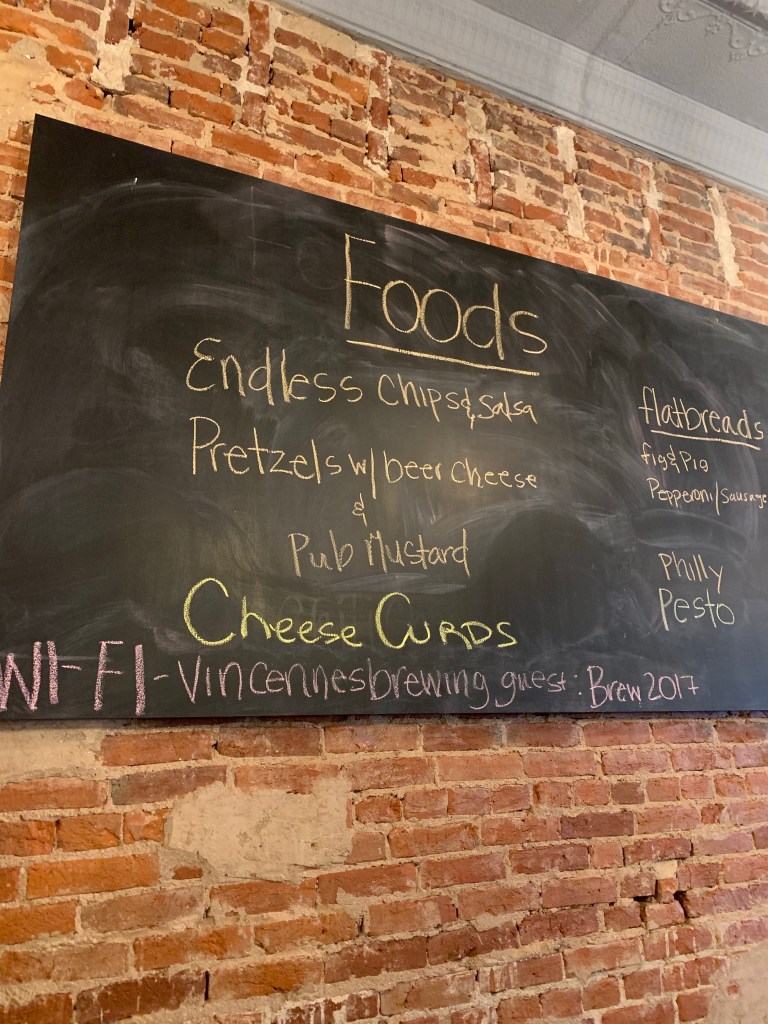 Foods
Endless Chips & Salsa
Pretzels w/ beer cheese
&
Pub Mustard
Cheese CURDS
flatbreads
fig & Pig
Pepperoni/Sausage
Philly
Pesto
WI-FI - Vincennesbrewing guest: Brew 2017